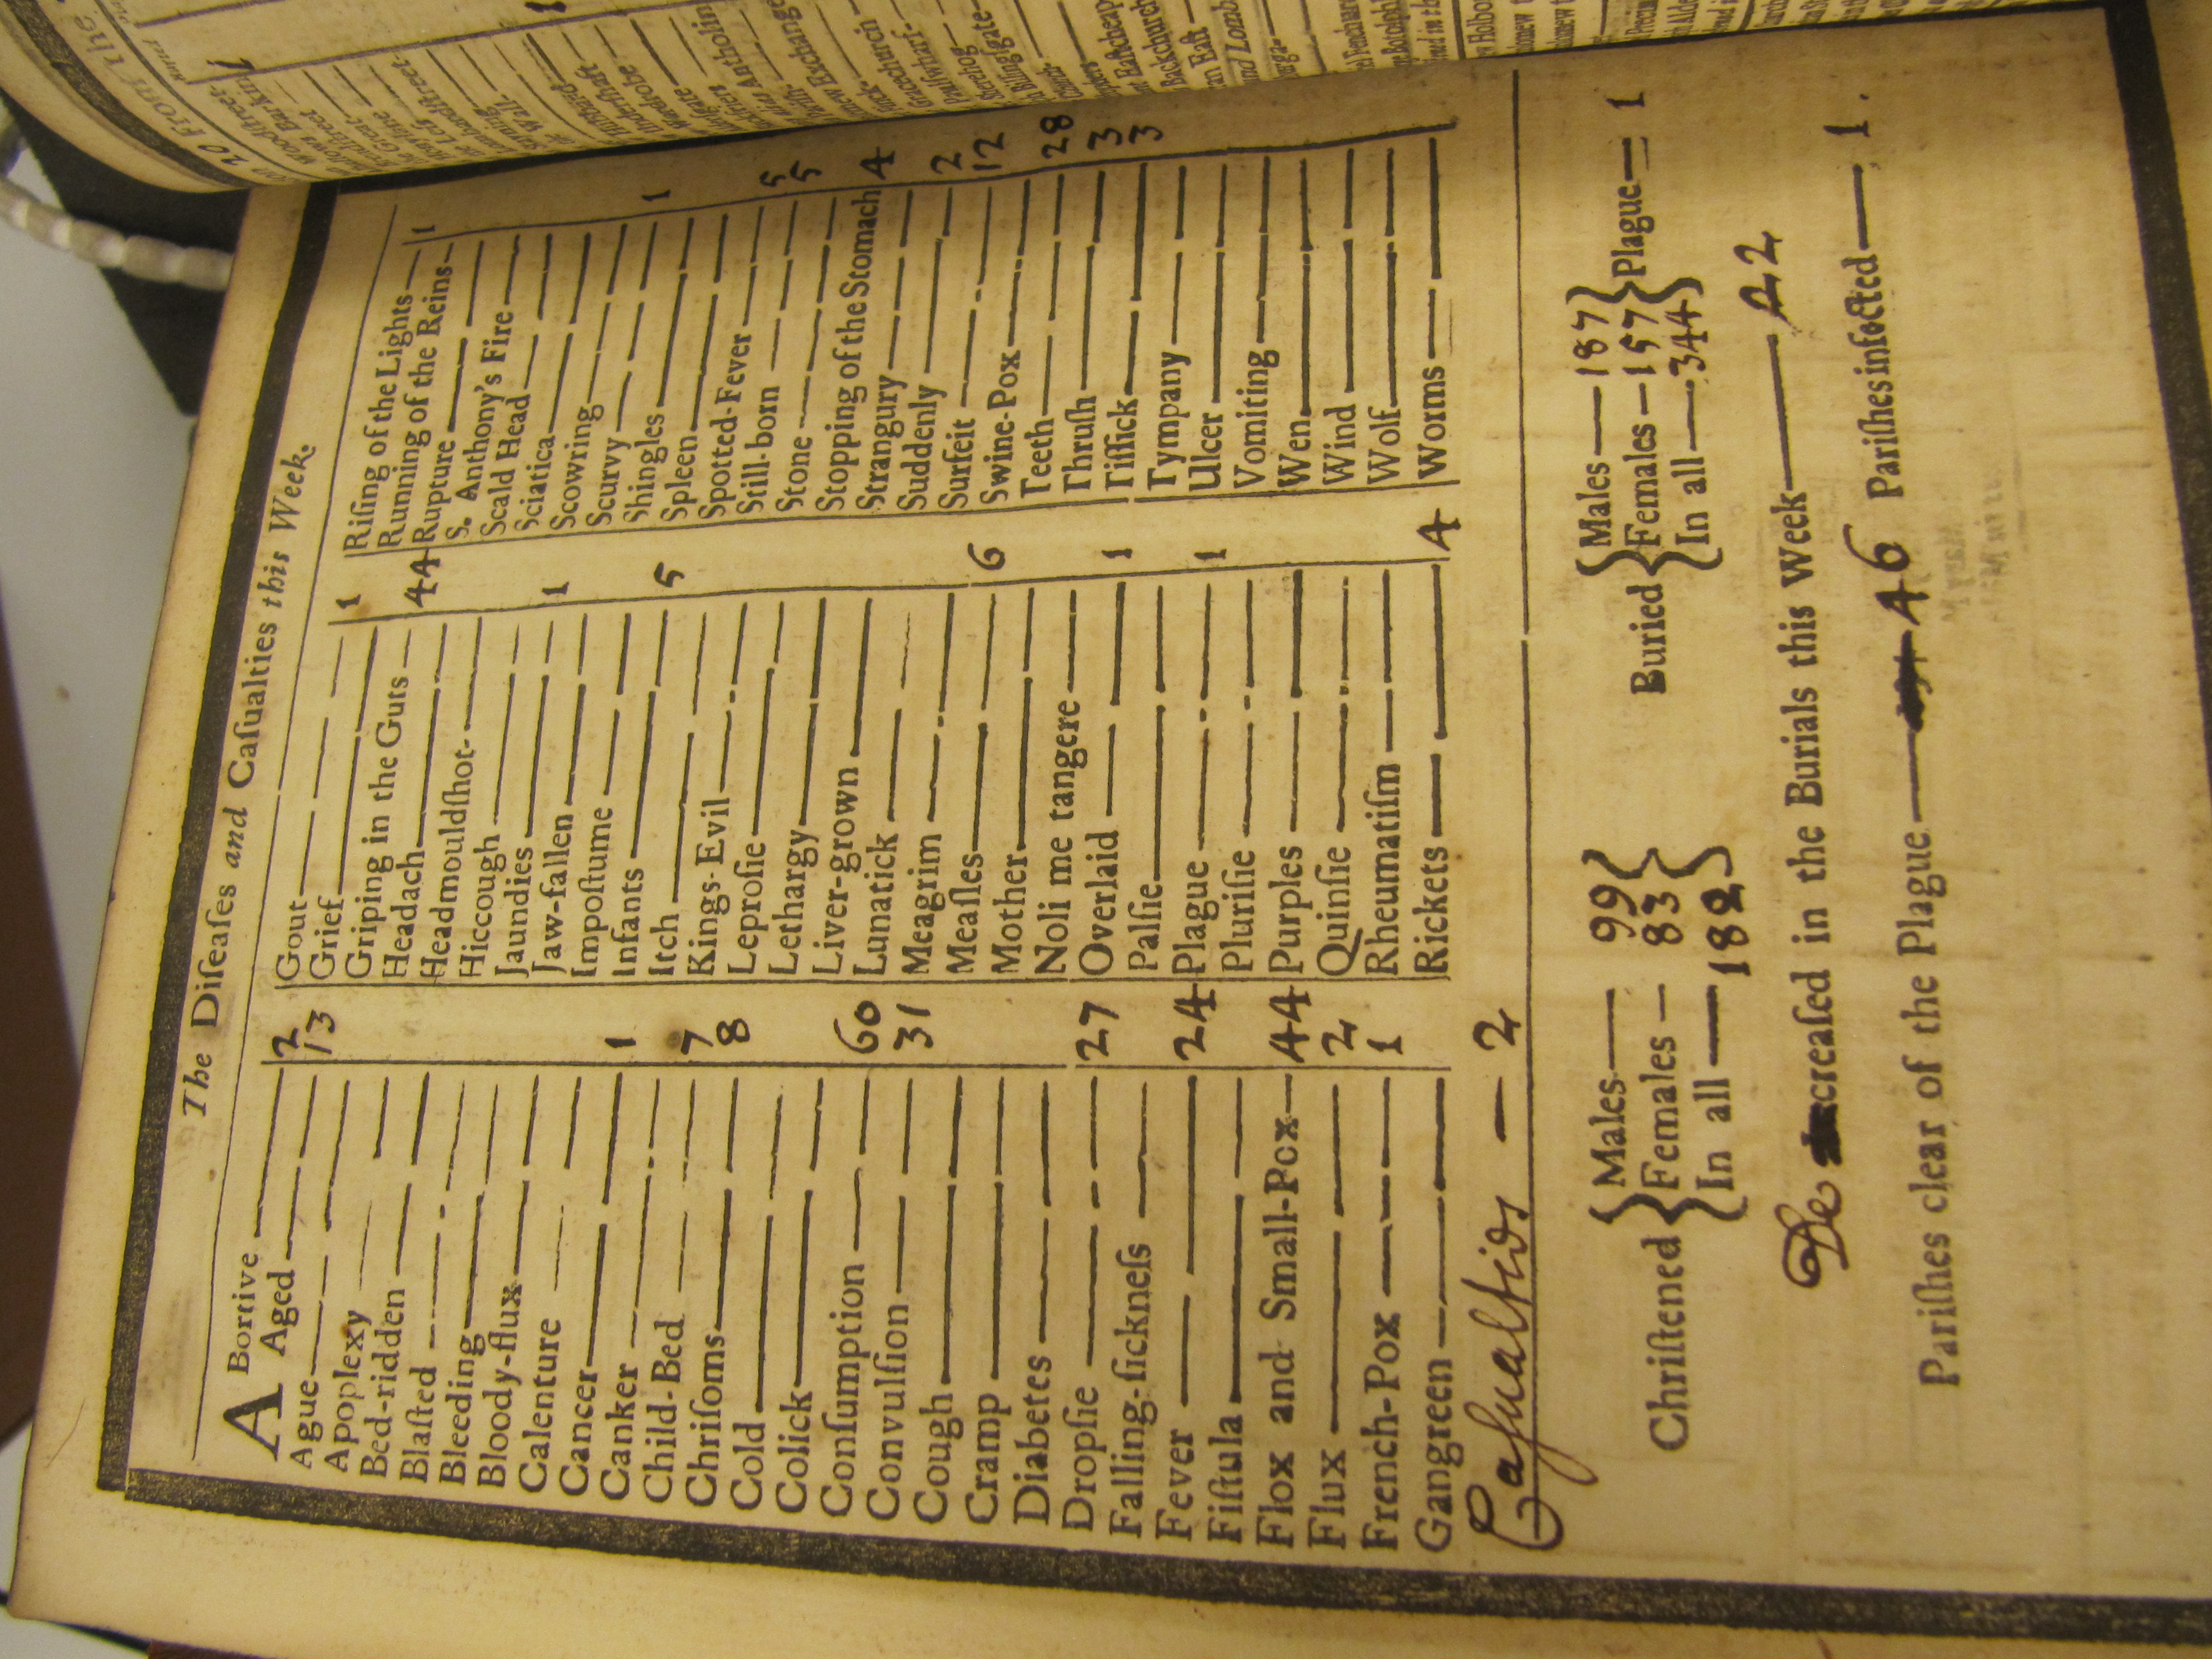 The Diſeaſes and Caſualties this Week.
ABortive 2
Aged 13
Ague
Apoplexy
Bed-ridden
Blaſted
Bleeding
Bloody-flux
Calenture
Cancer 1
Canker
Child-Bed 7
Chriſoms 8
Cold
Colick
Conſumption 60
Convulſion 31
Cough
Cramp
Diabetes
Dropſie 27
Falling-ſickneſs
Fever 24
Fiſtula
Flox and Small-Pox 44
Flux 2
French-Pox 1
Gangreen
Caſualtids — 2
Gout 1
Grief
Griping in the Guts 44
Headach
Headmouldſhot
Hiccough
Jaundies 1
Jaw-fallen
Impoſtume
Infants 5
Itch
Kings-Evil
Leproſie
Lethargy
Liver-grown
Lunatick
Meagrim
Meaſles 6
Mother
Noli me tangere
Overlaid 1
Palſie
Plague 1
Pluriſie
Purples
Quinſie
Rheumatiſm
Rickets 4
Riſing of the Lights 1
Running of the Reins
Rupture
S. Anthony's Fire
Scald Head
Sciatica
Scowring
Scurvy 1
Shingles
Spleen
Spotted-Fever 5
Still-born 5
Stone
Stopping of the Stomach 4
Strangury
Suddenly 2
Surfeit 12
Swine-Pox
Teeth 28
Thruſh 3
Tiſſick 3
Tympany
Ulcer
Vomiting
Wen
Wind
Wolf
Worms
Chriſtened { Males — 99 Females — 83 In all — 182 } Buried { Males — 187 Females — 157 In all — 344 } Plague — 1
Decreaſed in the Burials this Week — 22
Pariſhes clear of the Plague — 46 Pariſhes infected — 1.